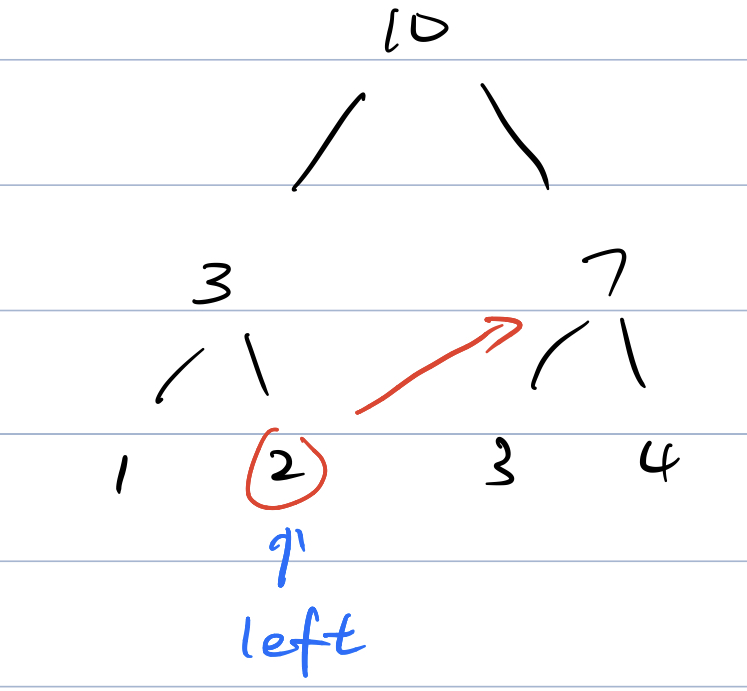 10
3 7
1 2 3 4
left